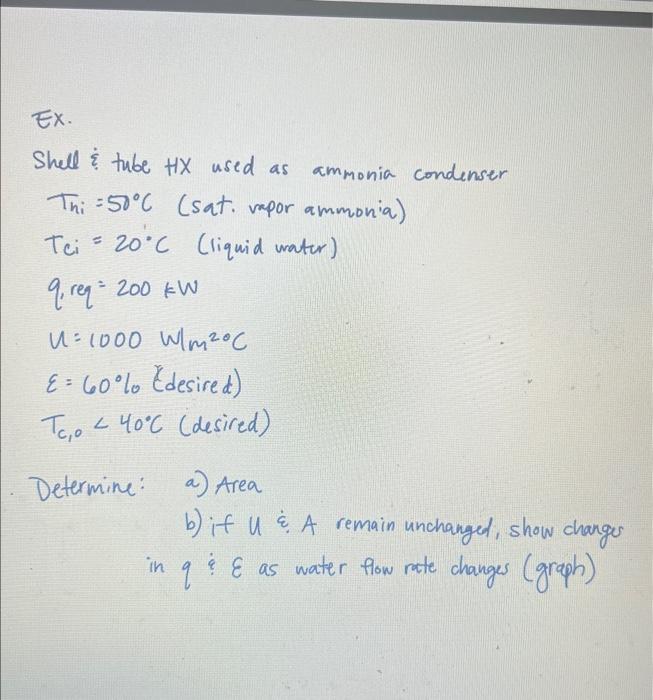 Ex.
Shell & tube HX used as ammonia condenser
Thi = 50°C (sat. vapor ammonia)
Tci = 20°C (liquid water)
q, req = 200 kW
U = 1000 W/m²°C
ε = 60% (desired)
Tc,o < 40°C (desired)
Determine: a) Area
b) if U & A remain unchanged, show changes
in q & ε as water flow rate changes (graph)